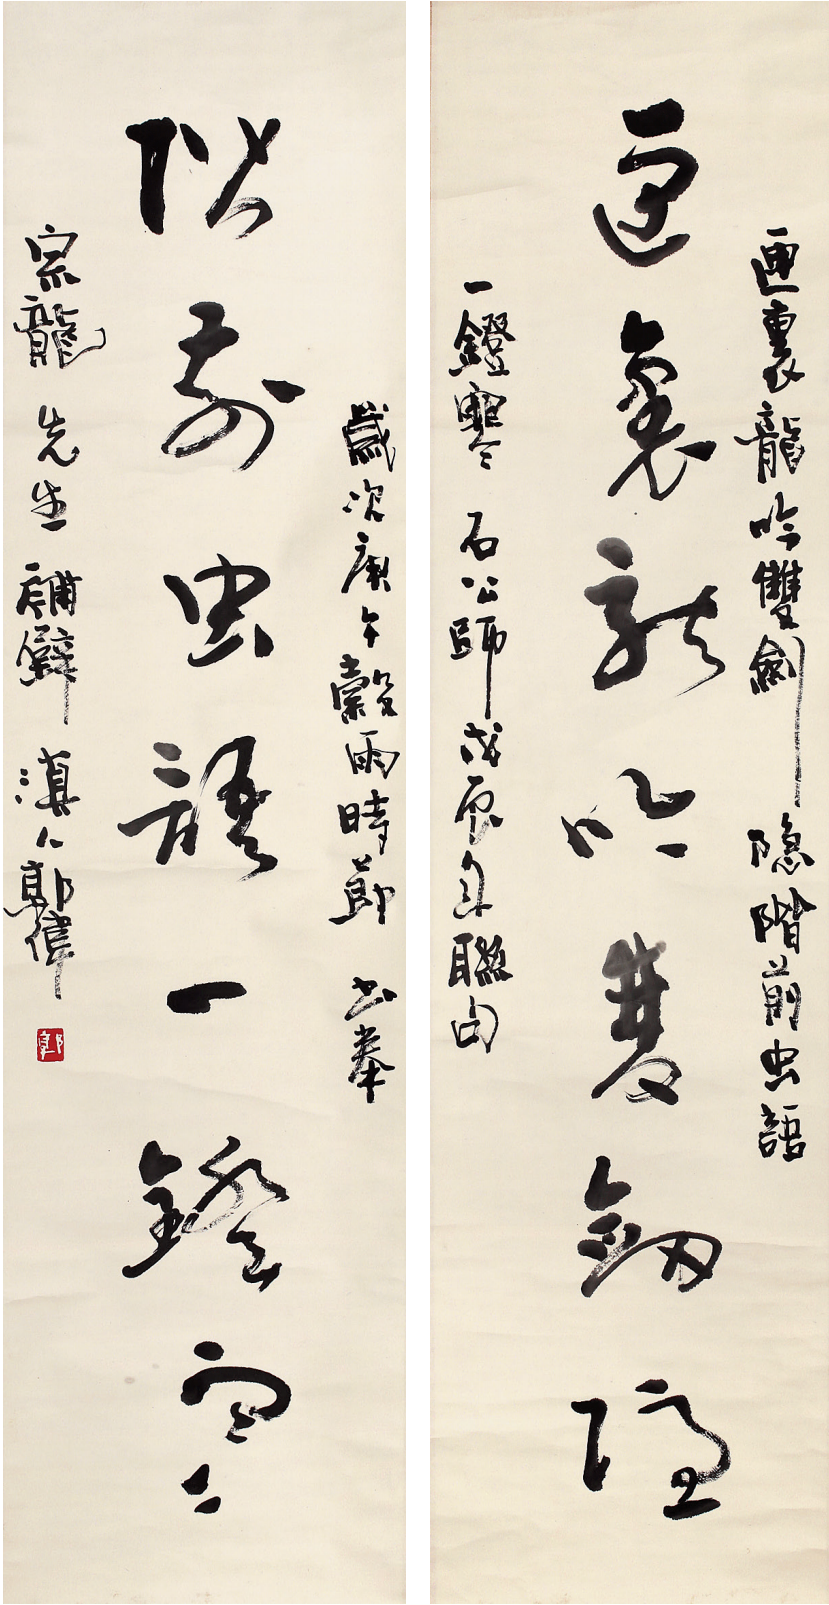 匣裏龍吟雙劍隱階前虫語
匣裏龍吟雙劍隱
一鐙寒 石公師戊辰年聯句
歲次庚午穀雨時節 書奉
階前虫語一鐙寒
宗龍先生補壁 滇人郭偉
郭